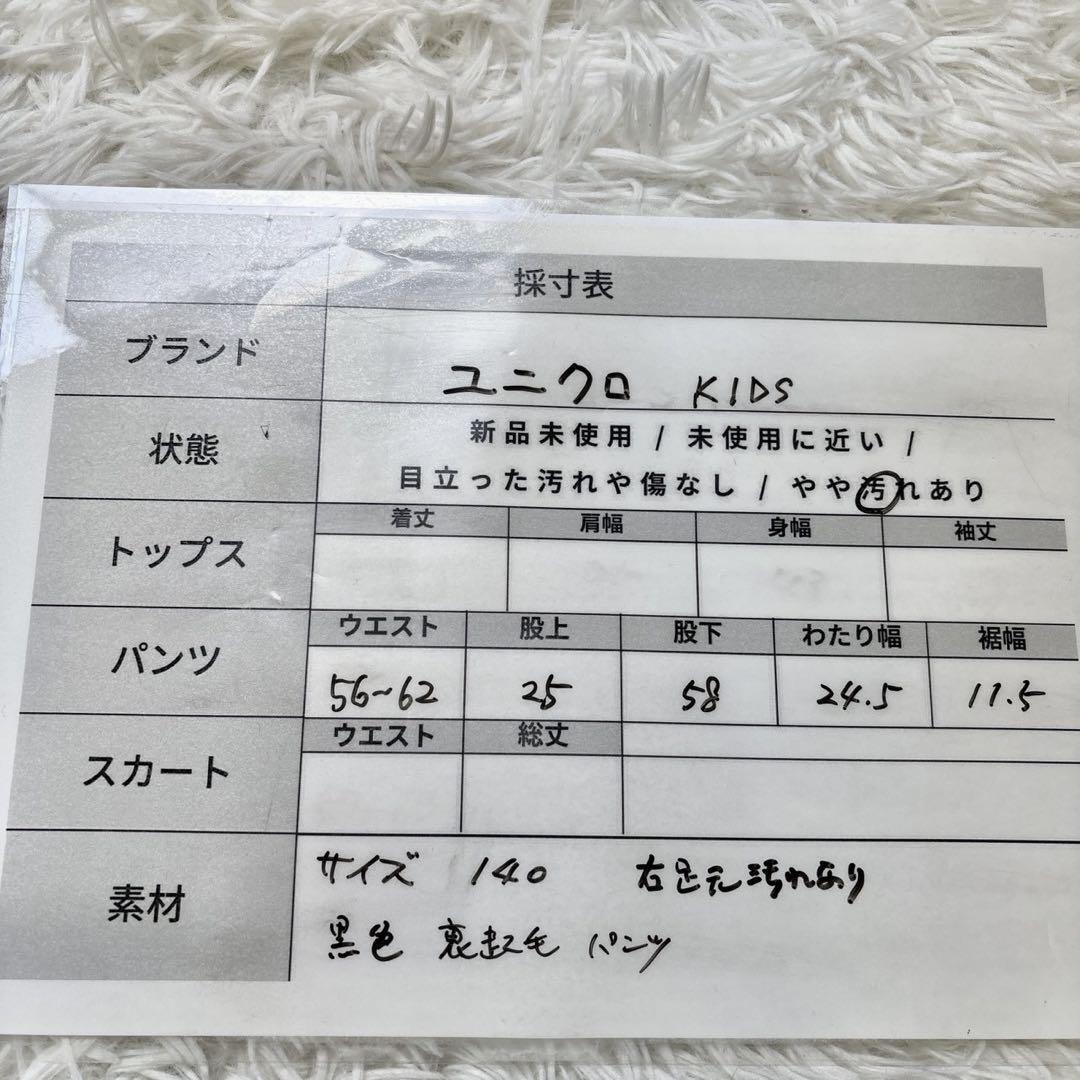 採寸表
ブランド ユニクロ KIDS
状態 新品未使用 / 未使用に近い /
目立った汚れや傷なし / やや汚れあり
トップス 着丈 肩幅 身幅 袖丈
パンツ ウエスト 股上 股下 わたり幅 裾幅
56~62 25 58 24.5 11.5
スカート ウエスト 総丈
素材 サイズ 140 右足元汚れあり
黒色 裏起毛 パンツ